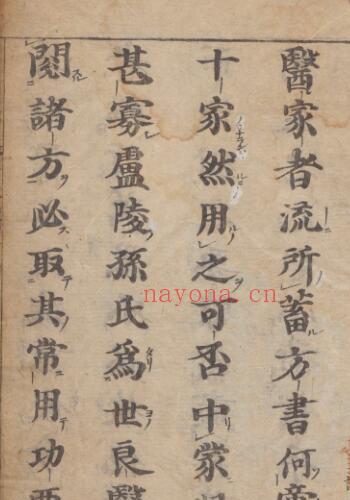 醫家者流所蓄方書何
十家然用之可否中
甚寡盧陵孫氏爲世良醫
閱諸方必取其常用功
nayona.cn